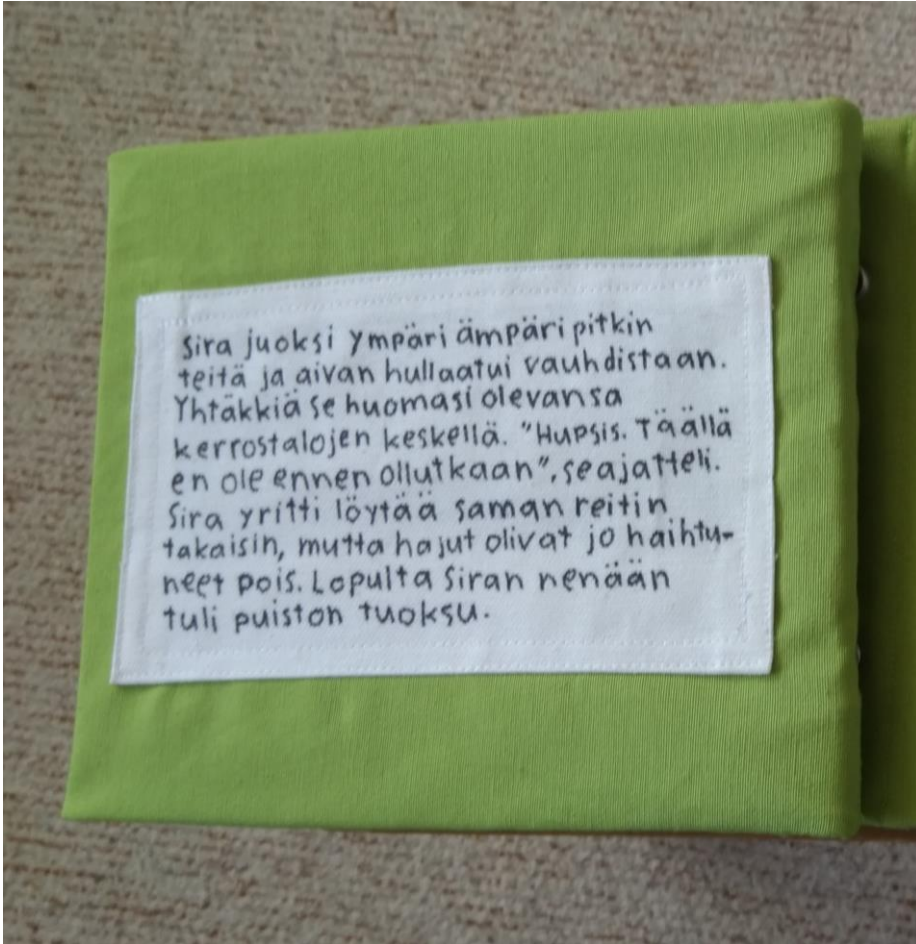 Sira juoksi ympäri ämpäri pitkin
teitä ja aivan hullaatui vauhdistaan.
Yhtäkkiä se huomasi olevansa
kerrostalojen keskellä. "Hupsis. Täällä
en ole ennen ollutkaan", se ajatteli.
Sira yritti löytää saman reitin
takaisin, mutta hajut olivat jo haihtu-
neet pois. Lopulta Siran nenään
tuli puiston tuoksu.